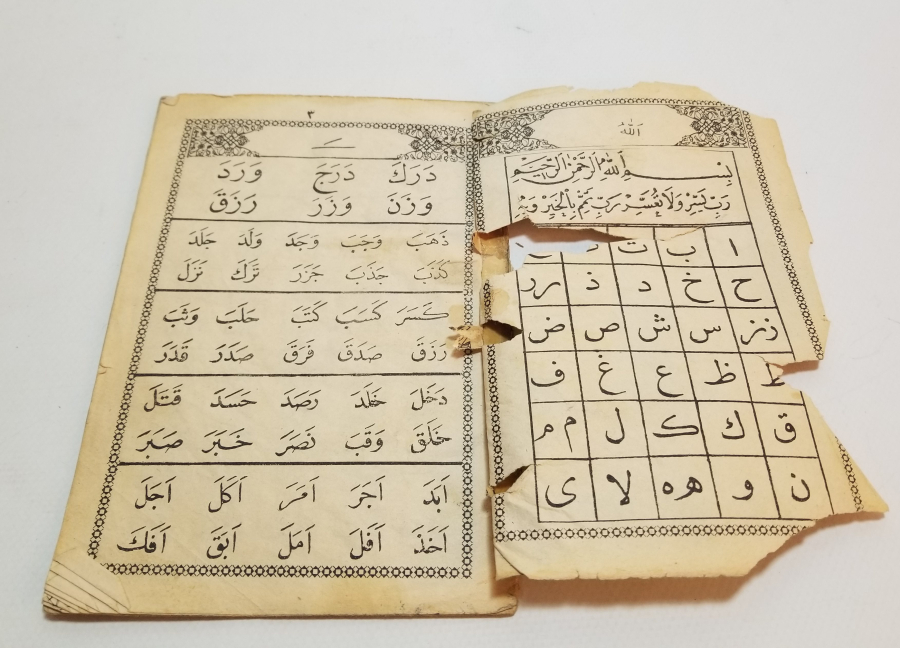 الله
بِسْمِ اللهِ الرَّحْمٰنِ الرَّحِيْمِ
رَبِّ يَسِّرْ وَلَا تُعَسِّرْ رَبِّ تَمِّمْ بِالْخَيْرِ وَبِهِ
ا ب ت
ح خ د ذ رر
زز س ش ص ض
ط ظ ع غ ف
ق ك ک ل م م
ن و هه لا ى
٣
دَرَكَ دَرَجَ وَرَدَ
وَزَنَ وَزَرَ رَزَقَ
ذَهَبَ وَجَبَ وَجَدَ وَلَدَ جَلَدَ
كَذَبَ جَذَبَ جَزَرَ تَرَكَ نَزَلَ
كَسَرَ كَسَبَ كَتَبَ حَلَبَ وَثَبَ
رَزَقَ صَدَقَ فَرَقَ صَدَرَ قَدَرَ
دَخَلَ خَلَدَ رَصَدَ حَسَدَ قَتَلَ
خَلَقَ وَقَبَ نَصَرَ خَبَرَ صَبَرَ
اَبَدَ اَجَرَ اَمَرَ اَكَلَ اَجَلَ
اَخَذَ اَفَلَ اَمَلَ اَبَقَ اَفَكَ